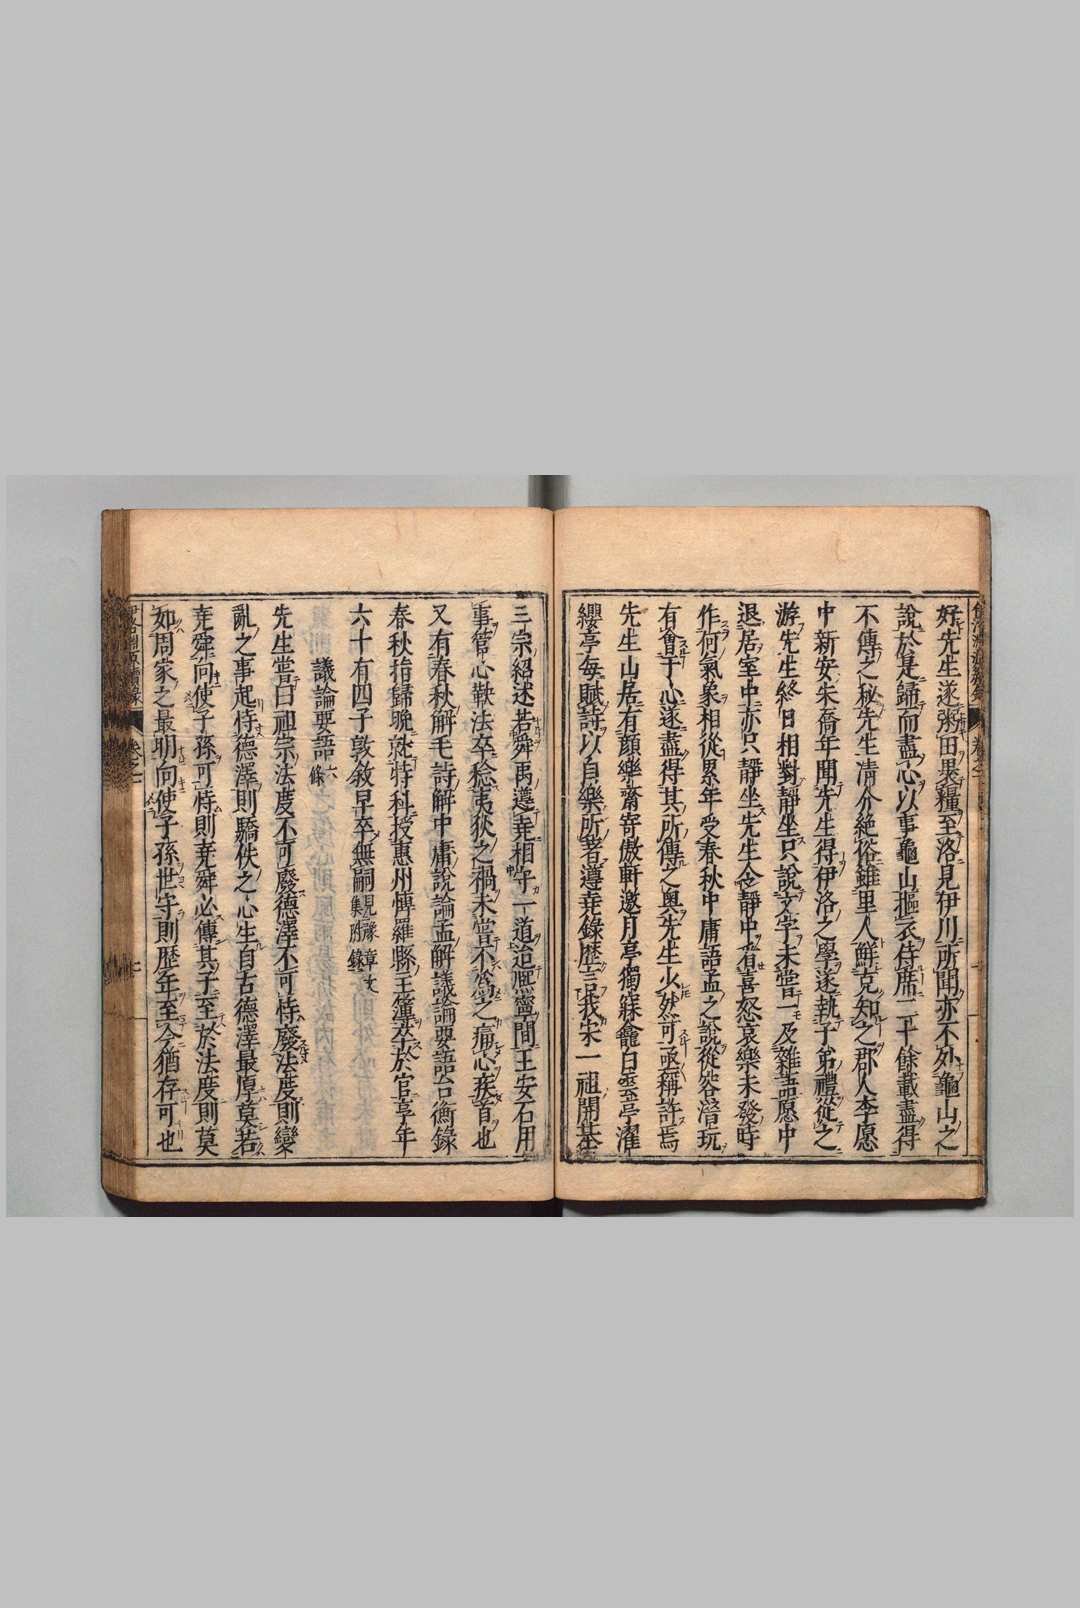 好先生遂鬻田裹糧至洛見伊川所聞亦不外龜山之
說於是歸而盡心以事龜山摳衣侍席二十餘載盡得
不傳之秘先生清介絶俗雖里人鮮克知之郡人李愿
中新安朱喬年聞先生得伊洛之學遂執子弟禮從之
游先生終日相對靜坐只說文字未嘗一及雜語愿中
退居室中亦只靜坐先生令靜中看喜怒哀樂未發時
作何氣象相從累年受春秋中庸語孟之說從容潛玩
有會于心遂盡得其所傳之奥先生少然可亟稱許焉
先生山居有顔樂齋寄傲軒邀月亭獨寐龕白雲亭濯
纓亭每賦詩以自樂所著遵堯錄歷言我宋一祖開基
三宗紹述若舜禹遵堯相守一道迨熈寧間王安石用
事管心鞅法卒稔夷狄之禍未嘗不爲之痛心疾首也
又有春秋解毛詩解中庸說論孟解議論要語台衡錄
春秋指歸晚就特科授惠州博羅縣主簿卒於官享年
六十有四子敦敘早卒無嗣見豫章文集附錄
議論要語六條
先生嘗曰祖宗法度不可廢德澤不可恃廢法度則變
亂之事起恃德澤則驕佚之心生自古德澤最厚莫若
堯舜向使子孫可恃則堯舜必傳其子至於法度則莫
如周家之最明向使子孫世守則歷年至今猶存可也
伊洛淵源續錄 卷之一 七